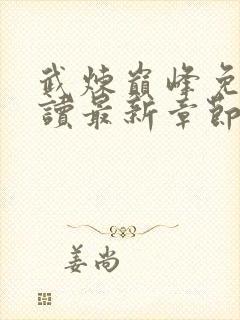 武煉巔峰免
讀最新章節
姜尚